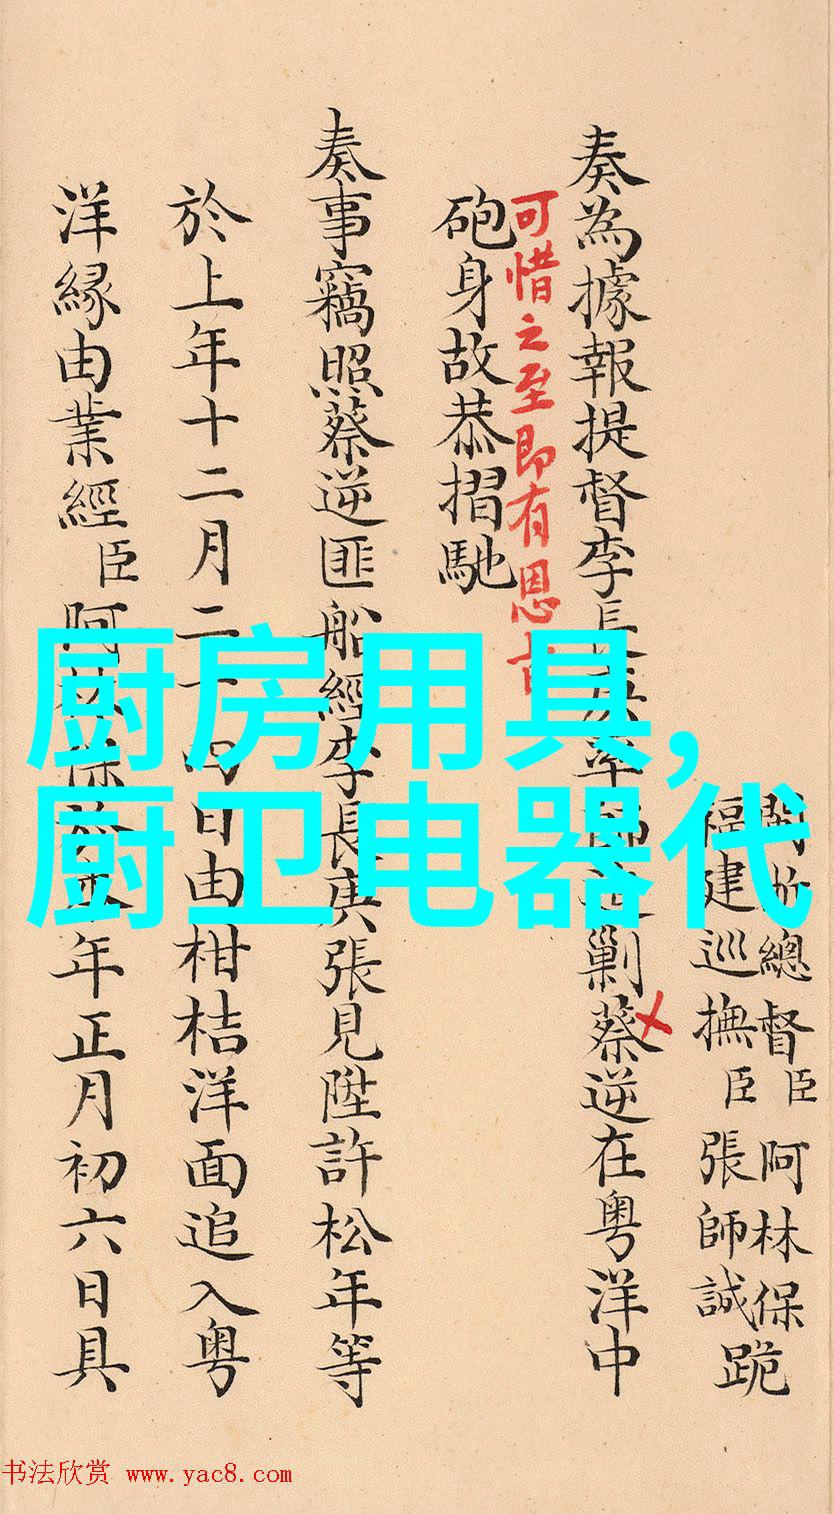 閩浙總督臣阿林保
福建巡撫臣張師誠跪
奏為據報提督李長剿蔡逆在粵洋中
可惜之至即有恩旨
砲身故恭摺馳
奏事竊照蔡逆匪船經李長庚張見陞許松年等
於上年十二月二十四日由柑桔洋面追入粵
洋緣由業經臣阿林保於本年正月初六日具
厨房用具,
厨卫电器代
书法欣赏 www.yac8.com